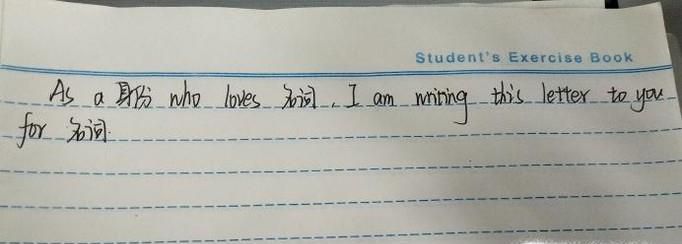 Student's Exercise Book
As a 身份 who loves 名词, I am writing this letter to you
for 名词.